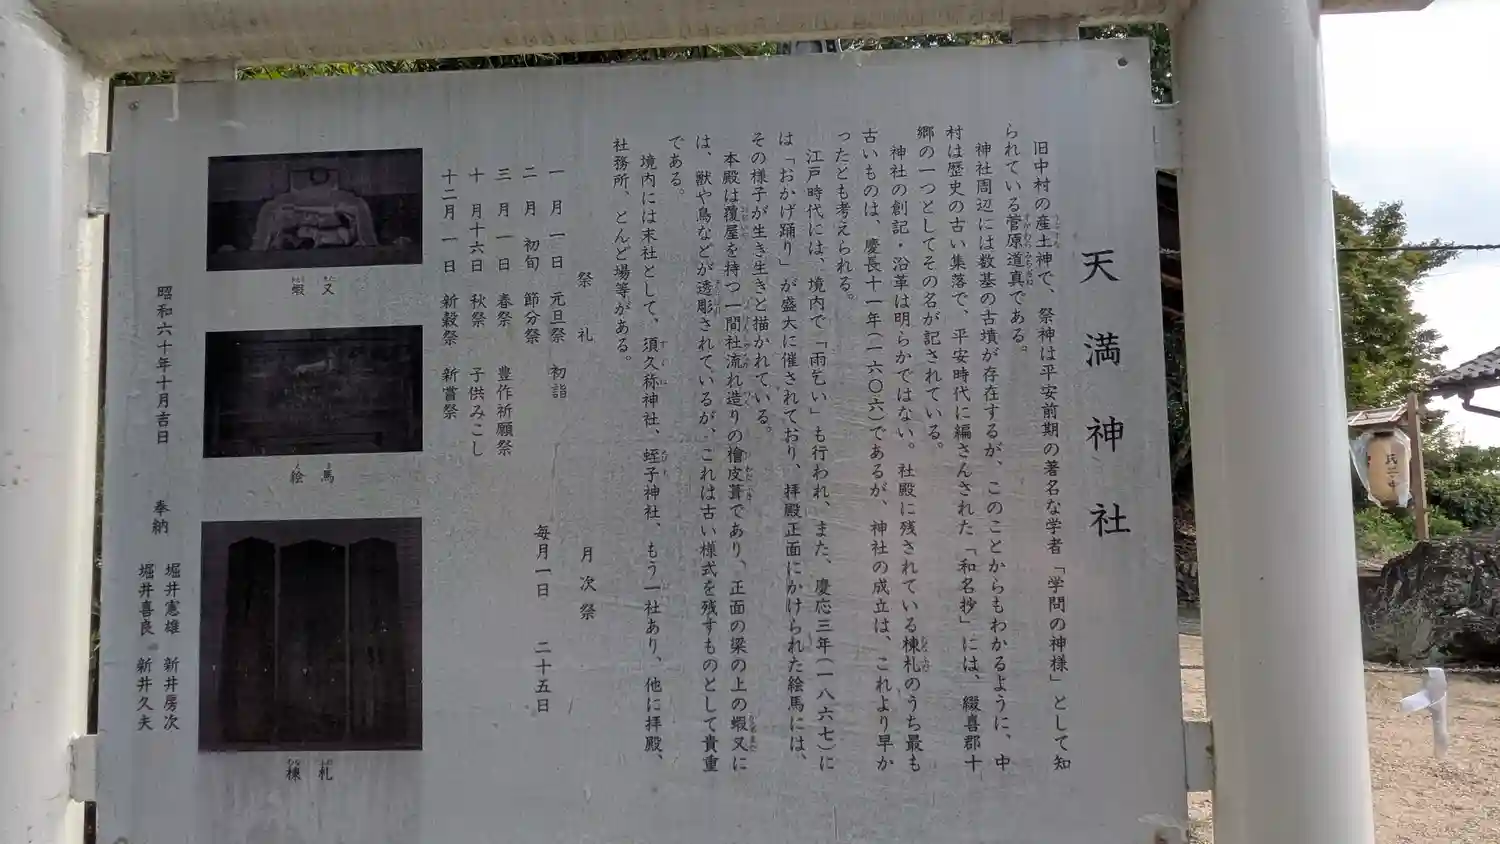 天満神社
旧中村の産土神で、祭神は平安前期の著名な学者「学問の神様」として知
られている菅原道真である。
神社周辺には数基の古墳が存在するが、このことからもわかるように、中
村は歴史の古い集落で、平安時代に編さんされた「和名抄」には、綴喜郡十
郷の一つとしてその名が記されている。
神社の創記・沿革は明らかではない。社殿に残されている棟札のうち最も
古いものは、慶長十一年(一六〇六)であるが、神社の成立は、これより早か
ったとも考えられる。
江戸時代には、境内で「雨乞い」も行われ、また、慶応三年(一八六七)に
は「おかげ踊り」が盛大に催されており、拝殿正面にかけられた絵馬には、
その様子が生き生きと描かれている。
本殿は覆屋を持つ一間社流れ造りの檜皮葺であり、正面の梁の上の蝦又に
は、獣や鳥などが透彫されているが、これは古い様式を残すものとして貴重
である。
境内には末社として、須久祢神社、蛭子神社、もう一社あり、他に拝殿、
社務所、とんど場等がある。
祭礼 月次祭
一月一日 元旦祭 初詣 毎月一日 二十五日
二月 初旬 節分祭
三月一日 春祭 豊作祈願祭
十月十六日 秋祭 子供みこし
十二月一日 新穀祭 新嘗祭
蝦又
絵馬
棟札
昭和六十年十月吉日 奉納 堀井憲雄 新井房次
堀井喜良 新井久夫